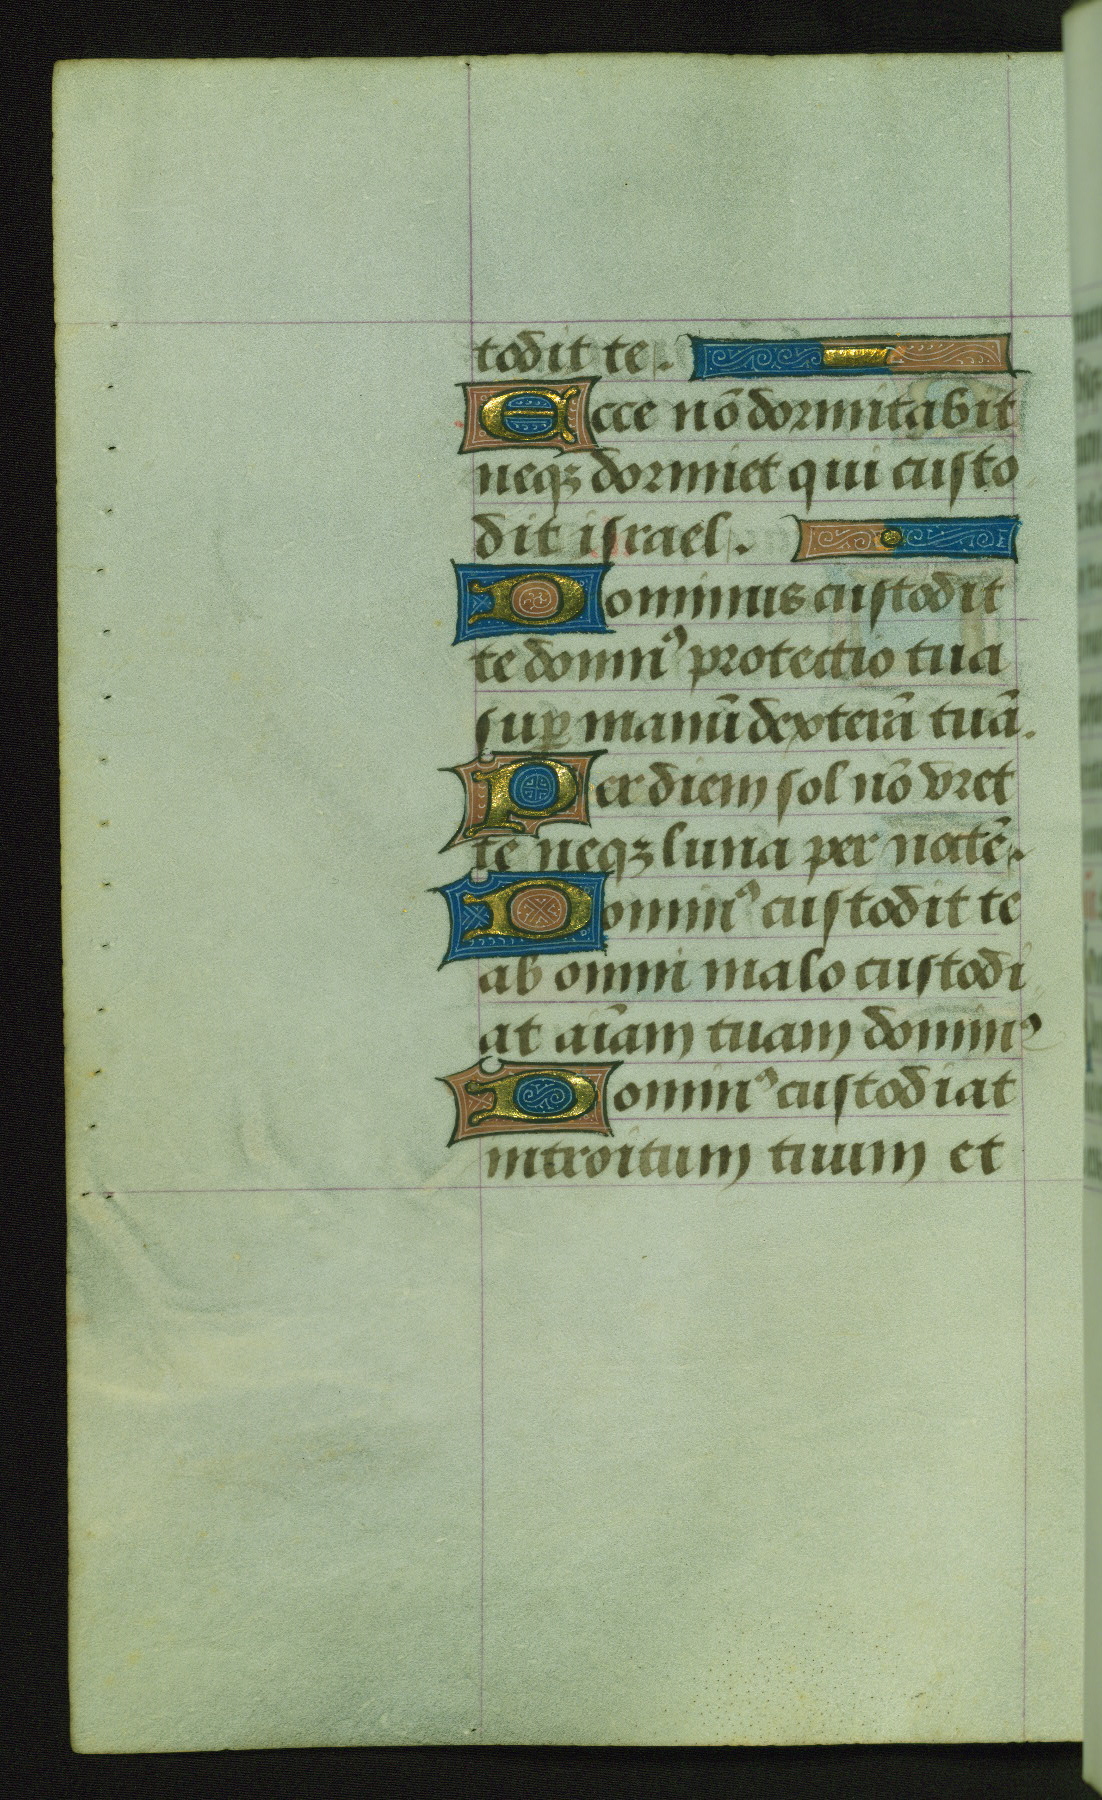 todit te.
Ecce nō dormitabit
neqȝ dormiet qui custo
dit israel.
Dominus custodit
te dominꝰ protectio tua
suꝑ manū dexterā tuā.
Per diem sol nō vret
te neqȝ luna per noctē.
Dominꝰ custodit te
ab omni malo custodi
at aīam tuam dominꝰ
Dominꝰ custodiat
introitum tuum et